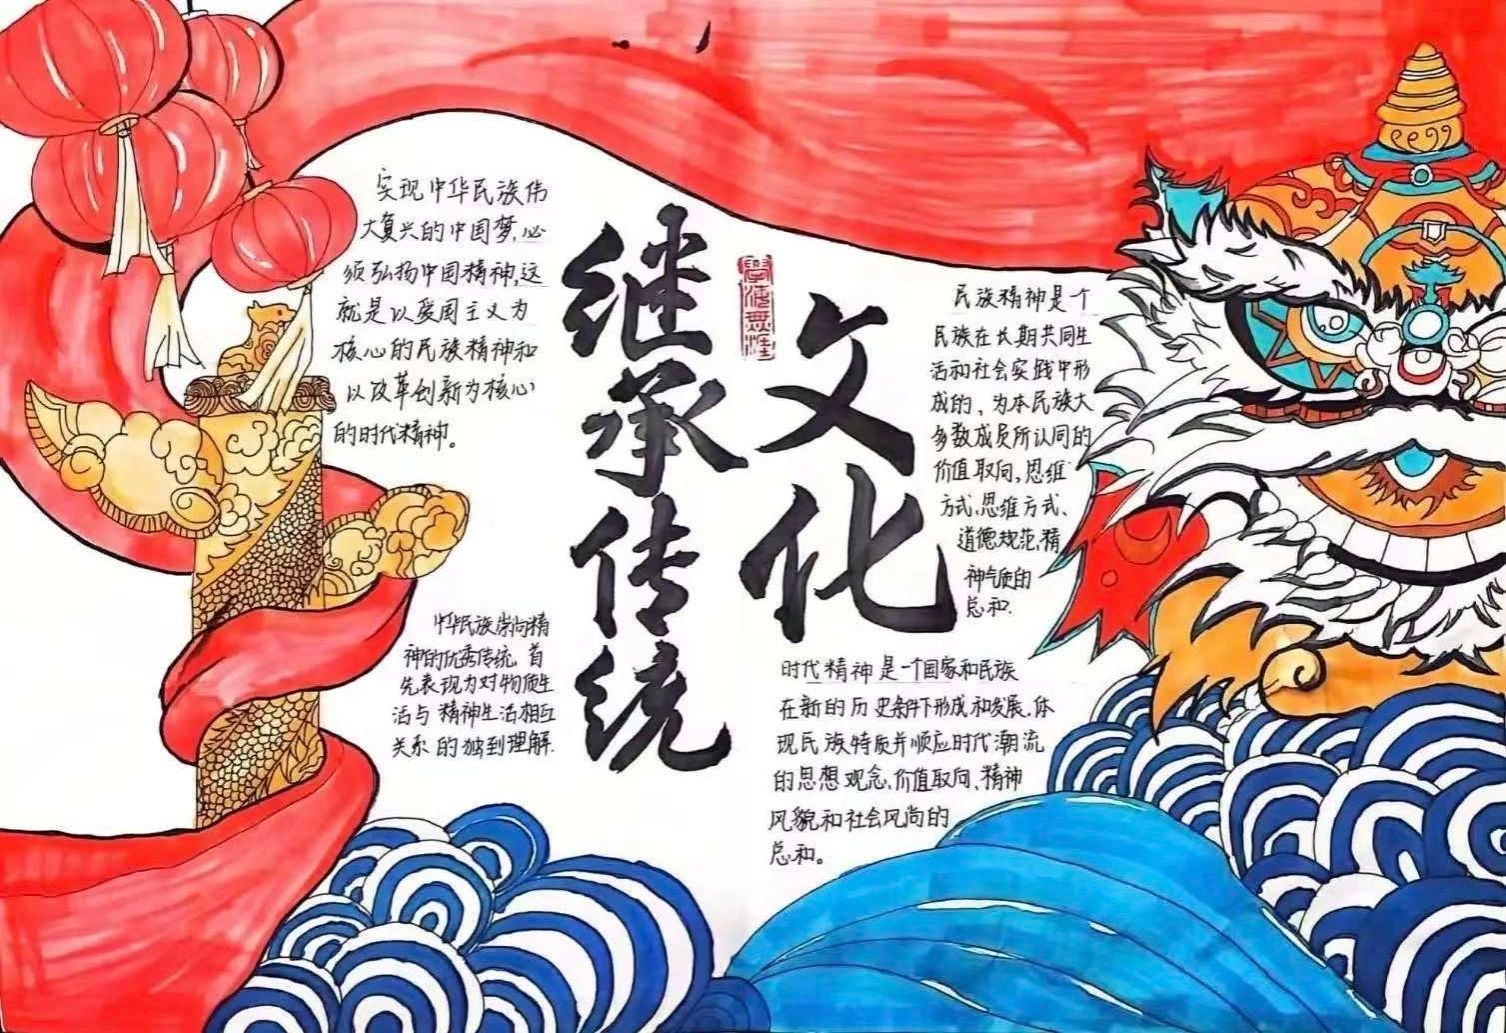 继承传统
文化
學海無涯
实现中华民族伟
大复兴的中国梦,必
须弘扬中国精神,这
就是以爱国主义为
核心的民族精神和
以改革创新为核心
的时代精神。
中华民族崇尚精
神的优秀传统,首
先表现为对物质生
活与精神生活相互
关系的独到理解.
民族精神是一个
民族在长期共同生
活和社会实践中形
成的，为本民族大
多数成员所认同的
价值取向,思维
方式,思维方式、
道德规范,精
神气质的
总和.
时代精神是一个国家和民族
在新的历史条件下形成和发展,体
现民族特质并顺应时代潮流
的思想观念,价值取向、精神
风貌和社会风尚的
总和。